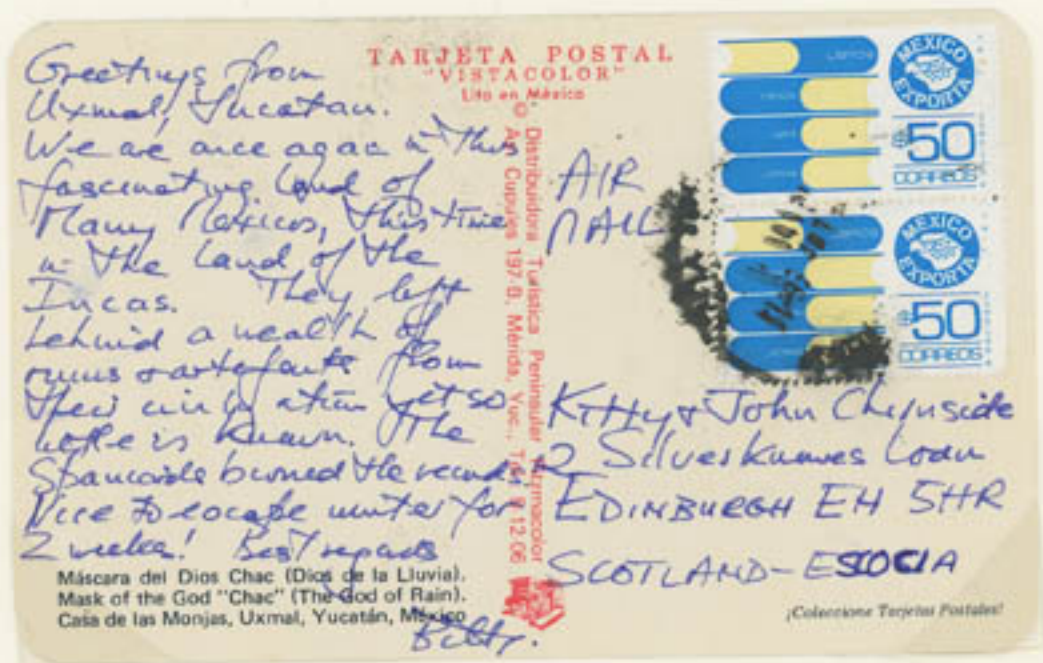 Greetings from
Uxmal, Yucatan.
We are once again in this
fascinating land of
Many Mexicos, this time
in the land of the
Incas. They left
behind a wealth of
ruins & artefacts from
their civilization yet so
little is known. The
Spaniards burned the records
Nice to escape winter for
2 weeks! Best regards
Billy.
Máscara del Dios Chac (Dios de la Lluvia).
Mask of the God "Chac" (The God of Rain).
Casa de las Monjas, Uxmal, Yucatán, México
TARJETA POSTAL
"VISTACOLOR"
Lito en México
© Distribuidora Turística Peninsular
Av. Cupules 197-B, Mérida, Yuc.,
AIR
MAIL
MEXICO
EXPORTA
50
CORREOS
MEXICO
EXPORTA
50
CORREOS
Kitty & John Chirnside
2 Silverknowes Loan
EDINBURGH EH 5HR
SCOTLAND-ESCOCIA
¡Coleccione Tarjetas Postales!